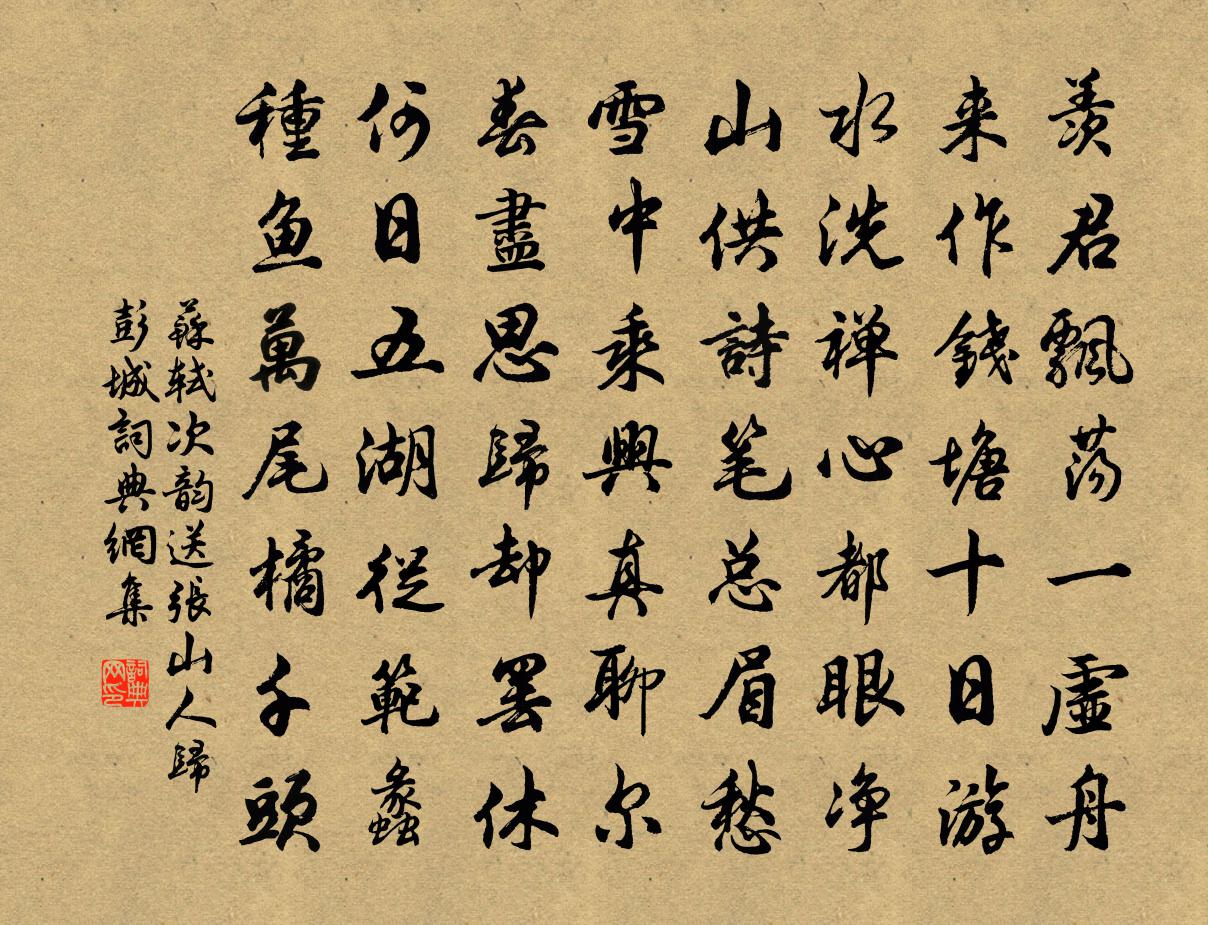 羨君飄蕩一虛舟
来作錢塘十日游
水洗禅心都眼净
山供詩笔总眉愁
雪中乘興真聊尔
春盡思歸却罢休
何日五湖從範蠡
種魚萬尾橘千頭
蘇轼次韵送張山人歸
彭城詞典網集
詞典网印